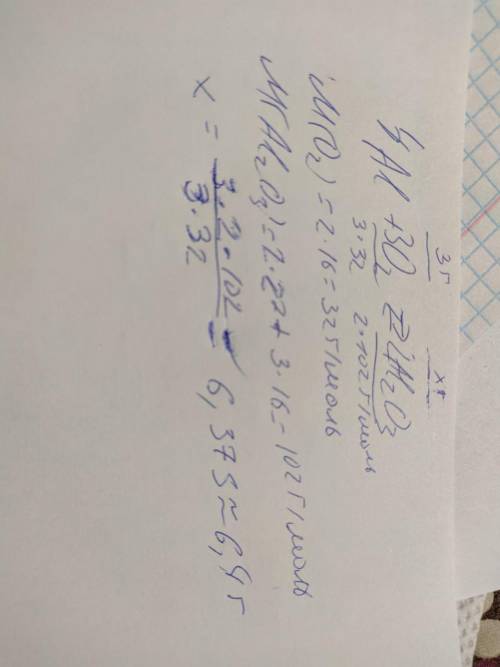 3г xг
4Al + 3O₂ = 2Al₂O₃
3·32 2·102г/моль
M(O₂) = 2·16 = 32г/моль
M(Al₂O₃) = 2·27 + 3·16 = 102г/моль
x = 3·2·102 / 3·32 = 6,375 ≈ 6,4г